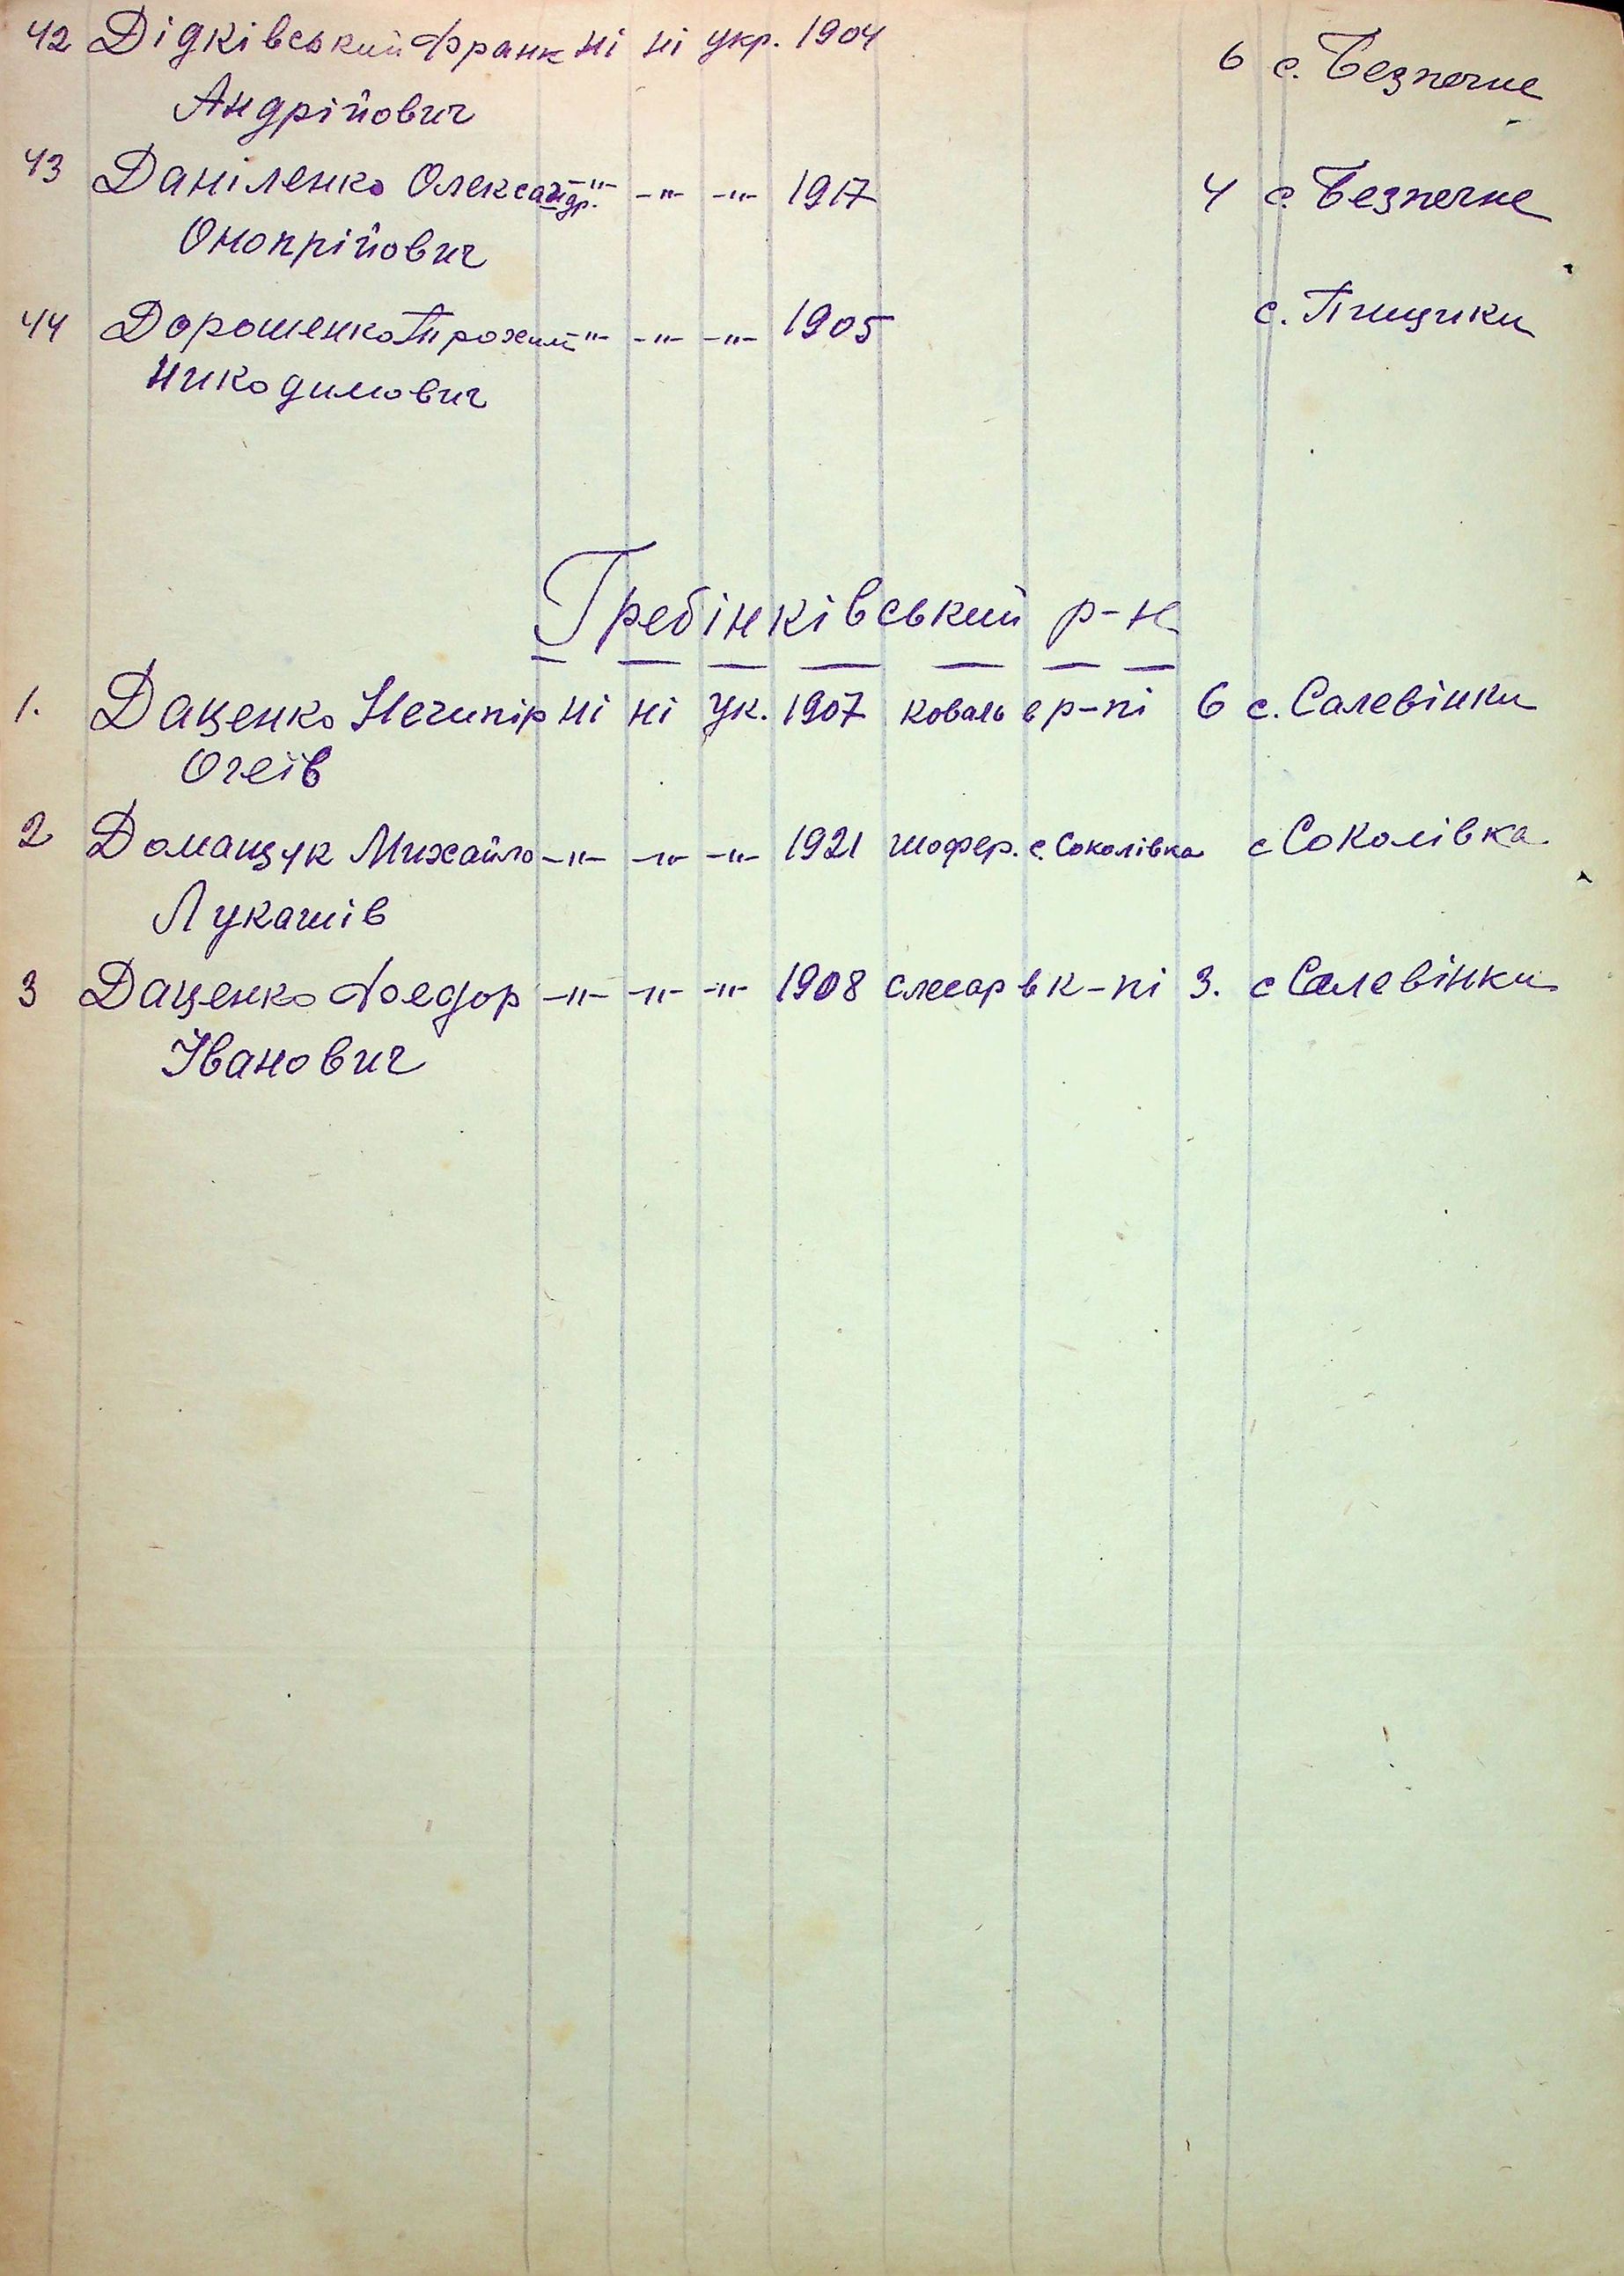 42 Дідківський Франк ні ні укр. 1904 6 с. Безпечне
Андрійович
43 Даніленко Олександр. -"- -"- -"- 1917 4 с. Безпечне
Онопрійович
44 Дорошенко Трохим -"- -"- -"- 1905 с. Пищики
Никодимович
Гребінківський р-н
1. Даценко Нечипір ні ні ук. 1907 коваль в р-пі 6 с. Салевінки
Огеїв
2 Доманчук Михайло -"- -"- -"- 1921 шофер. с. Соколівка с Соколівка
Лукашів
3 Даценко Фоедор -"- -"- -"- 1908 слесар в к-пі 3. с Салевінки
Іванович